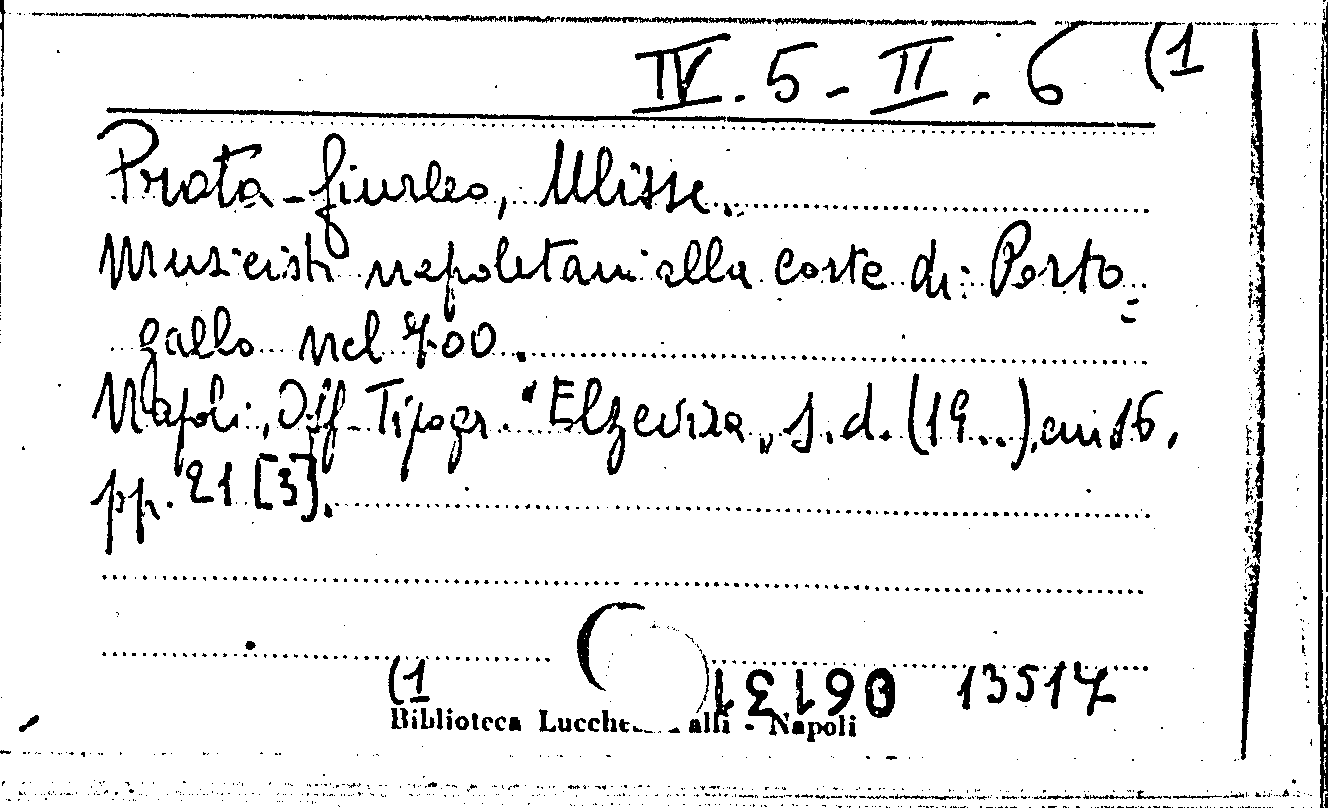 IV. 5 - II. 6 (1
Prota-Giurleo, Ulisse.
Musicisti napoletani alla corte di Porto=
gallo nel 700.
Napoli, Off. Tipogr. "Elzevira„ s.d. (19..), in 16,
pp. 21 [3].
(1
13517
Biblioteca Lucche alli - Napoli